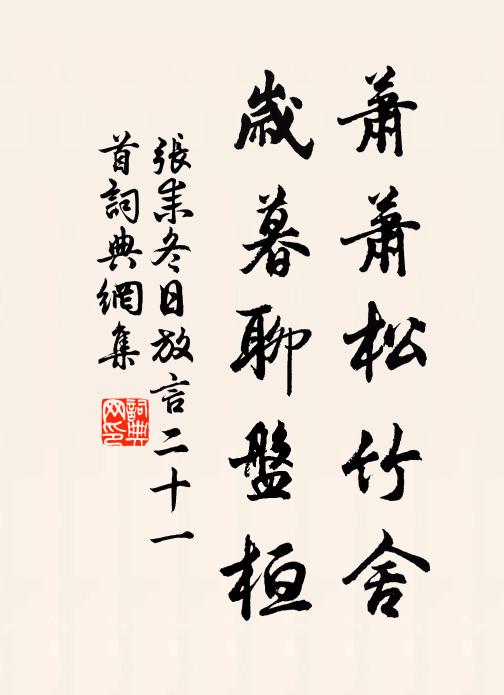 蕭蕭松竹舍
歲暮聊盤桓
張耒冬日放言二十一
首詞典網集
詞典
网印